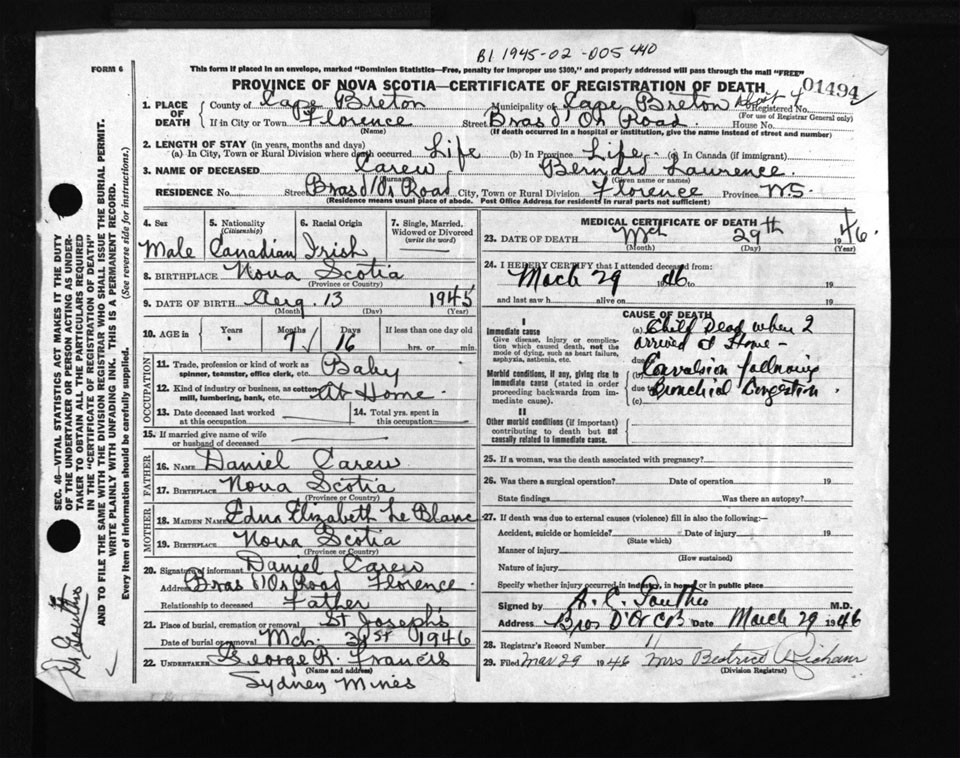 B1 1945-02-005440
FORM 6
This form if placed in an envelope, marked "Dominion Statistics—Free, penalty for improper use $300," and properly addressed will pass through the mail "FREE"
PROVINCE OF NOVA SCOTIA—CERTIFICATE OF REGISTRATION OF DEATH
01494
1. PLACE OF DEATH
County of Cape Breton Municipality of Cape Breton Registered No.
(For use of Registrar General only)
If in City or Town Florence Street Bras d'Or Road House No.
(Name) (If death occurred in a hospital or institution, give the name instead of street and number)
2. LENGTH OF STAY (in years, months and days)
(a) In City, Town or Rural Division where death occurred Life (b) In Province Life (c) In Canada (if immigrant)
3. NAME OF DECEASED Carew Lawrence
(Surname) (Given name or names)
RESIDENCE No. Street Bras d'Or Road City, Town or Rural Division Florence Province NS
(Residence means usual place of abode. Post Office Address for residents in rural parts not sufficient)
4. Sex 5. Nationality (Citizenship) 6. Racial Origin 7. Single, Married, Widowed or Divorced (write the word)
Male Canadian Irish
8. BIRTHPLACE Nova Scotia
(Province or Country)
9. DATE OF BIRTH Aug. 13 1945
(Month) (Day) (Year)
10. AGE in Years Months Days If less than one day old
7 16 hrs. or min.
OCCUPATION
11. Trade, profession or kind of work as spinner, teamster, office clerk, etc. Baby
12. Kind of industry or business, as cotton mill, lumbering, bank, etc. At Home
13. Date deceased last worked at this occupation 14. Total yrs. spent in this occupation
15. If married give name of wife or husband of deceased
FATHER
16. NAME Daniel Carew
17. BIRTHPLACE Nova Scotia
(Province or Country)
MOTHER
18. MAIDEN NAME Edna Elizabeth Le Blanc
19. BIRTHPLACE Nova Scotia
(Province or Country)
20. Signature of informant Daniel Carew
Address Bras d'Or Road Florence
Relationship to deceased Father
21. Place of burial, cremation or removal St Joseph's
Date of burial or removal Mch. 31st 1946
22. UNDERTAKER George R. Francis
(Name and address)
Sydney Mines
MEDICAL CERTIFICATE OF DEATH
23. DATE OF DEATH Mch 29th 1946
(Month) (Day) (Year)
24. I HEREBY CERTIFY that I attended deceased from:
March 29 1946 to 19
and last saw h alive on 19
CAUSE OF DEATH
I
Immediate cause
Give disease, injury or complication which caused death, not the mode of dying, such as heart failure, asphyxia, asthenia, etc.
(a) Child Dead when I
arrived at Home -
due
Morbid conditions, if any, giving rise to immediate cause (stated in order proceeding backwards from immediate cause).
(b) Convulsion following
due to Bronchial Congestion
(c)
II
Other morbid conditions (if important) contributing to death but not causally related to immediate cause.
25. If a woman, was the death associated with pregnancy?
26. Was there a surgical operation? Date of operation 19
State findings Was there an autopsy?
27. If death was due to external causes (violence) fill in also the following:—
Accident, suicide or homicide? Date of injury 19
(State which)
Manner of injury
(How sustained)
Nature of injury
Specify whether injury occurred in industry, in home or in public place
Signed by A. E. M.D.
Address Bras D'Or CB Date March 29 1946
28. Registrar's Record Number 11
29. Filed Mar 29 1946 Mrs Beatrice
(Division Registrar)
SEC. 46—VITAL STATISTICS ACT MAKES IT THE DUTY
OF THE UNDERTAKER OR PERSON ACTING AS UNDER-
TAKER TO OBTAIN ALL THE PARTICULARS REQUIRED
IN THE "CERTIFICATE OF REGISTRATION OF DEATH"
AND TO FILE THE SAME WITH THE DIVISION REGISTRAR WHO SHALL ISSUE THE BURIAL PERMIT.
WRITE PLAINLY WITH UNFADING INK. THIS IS A PERMANENT RECORD.
Every item of information should be carefully supplied. (See reverse side for instructions.)